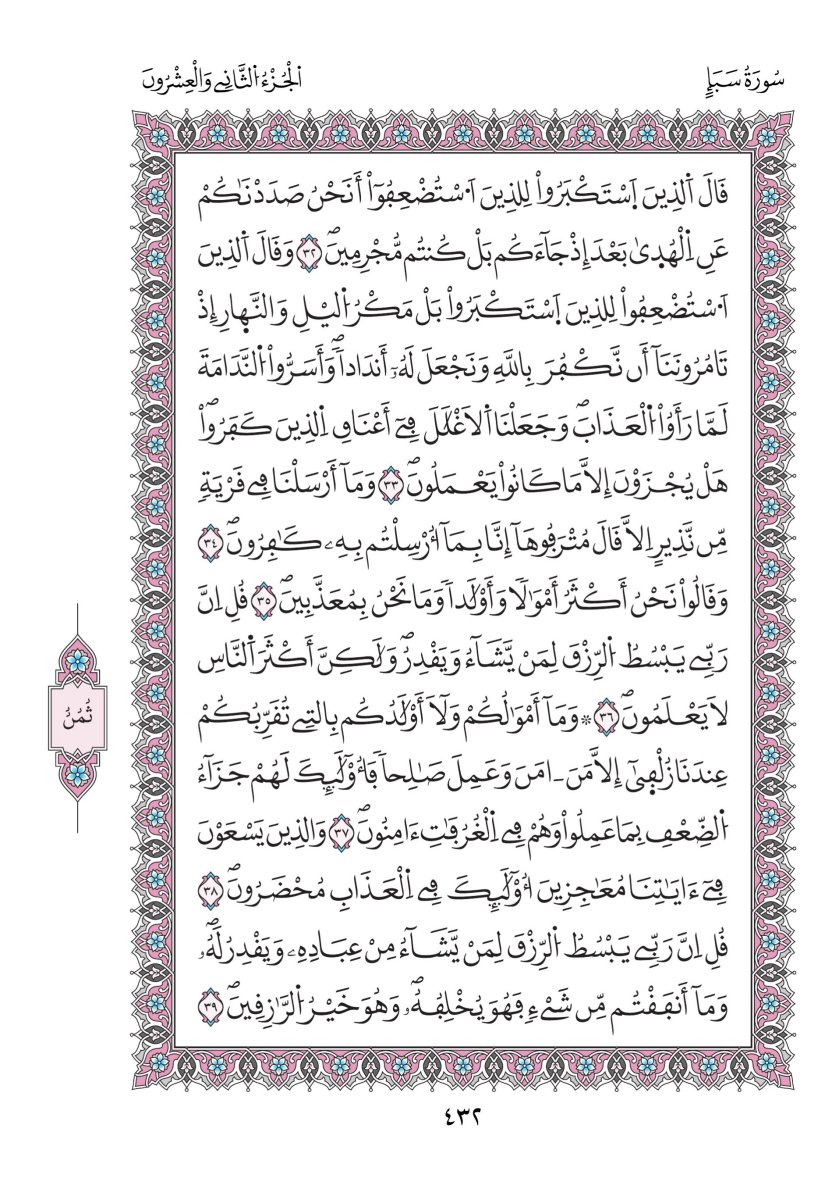 سُورَةُ سَبَإٍ
اَلْجُزْءُ اَلثَّانِي وَالْعِشْرُونَ
قَالَ اَلذِينَ اَسْتَكْبَرُواْ لِلذِينَ اَسْتُضْعِفُوٓاْ أَنَحْنُ صَدَدْنَٰكُمْ
عَنِ اِلْهُدۭىٰ بَعْدَ إِذْ جَآءَكُم بَلْ كُنتُم مُّجْرِمِينَۖ ٣٢ وَقَالَ اَلذِينَ
اَسْتُضْعِفُواْ لِلذِينَ اَسْتَكْبَرُواْ بَلْ مَكْرُ اُليْلِ وَالنَّهۭارِ إِذْ
تَامُرُونَنَآ أَن نَّكْفُرَ بِاللَّهِ وَنَجْعَلَ لَهُۥٓ أَندَاداٗۖ وَأَسَرُّواْ اُلنَّدَامَةَ
لَمَّا رَأَوُاْ اُلْعَذَابَۖ وَجَعَلْنَا اَلَاغْلَٰلَ فِےٓ أَعْنَاقِ اِلذِينَ كَفَرُواْۖ
هَلْ يُجْزَوْنَ إِلَّا مَا كَانُواْ يَعْمَلُونَۖ ٣٣ وَمَآ أَرْسَلْنَا فِے قَرْيَةٖ
مِّن نَّذِيرٍ اِلَّا قَالَ مُتْرَفُوهَآ إِنَّا بِمَآ أُرْسِلْتُم بِهِۦ كَٰفِرُونَۖ ٣٤
وَقَالُواْ نَحْنُ أَكْثَرُ أَمْوَٰلاٗ وَأَوْلَٰداٗ وَمَا نَحْنُ بِمُعَذَّبِينَۖ ٣٥ قُلِ اِنَّ
رَبِّے يَبْسُطُ اُلرِّزْقَ لِمَنْ يَّشَآءُ وَيَقْدِرُۖ وَلَٰكِنَّ أَكْثَرَ اَلنَّاسِ
لَا يَعْلَمُونَۖ ٣٦ ۞ وَمَآ أَمْوَٰلُكُمْ وَلَآ أَوْلَٰدُكُم بِالتِے تُقَرِّبُكُمْ
عِندَنَا زُلْفۭىٰٓ إِلَّا مَنَ ـ امَنَ وَعَمِلَ صَٰلِحاٗ فَأُوْلَٰٓئِكَ لَهُمْ جَزَآءُ
اُلضِّعْفِ بِمَا عَمِلُواْ وَهُمْ فِے اِلْغُرُفَٰتِ ءَامِنُونَۖ ٣٧ وَالذِينَ يَسْعَوْنَ
فِےٓ ءَايَٰتِنَا مُعَٰجِزِينَ أُوْلَٰٓئِكَ فِے اِلْعَذَابِ مُحْضَرُونَۖ ٣٨
قُلِ اِنَّ رَبِّے يَبْسُطُ اُلرِّزْقَ لِمَنْ يَّشَآءُ مِنْ عِبَادِهِۦ وَيَقْدِرُ لَهُۥۖ
وَمَآ أَنفَقْتُم مِّن شَےْءٖ فَهُوَ يُخْلِفُهُۥۖ وَهُوَ خَيْرُ اُلرَّٰزِقِينَۖ ٣٩
ثُمُنُ
٤٣٢